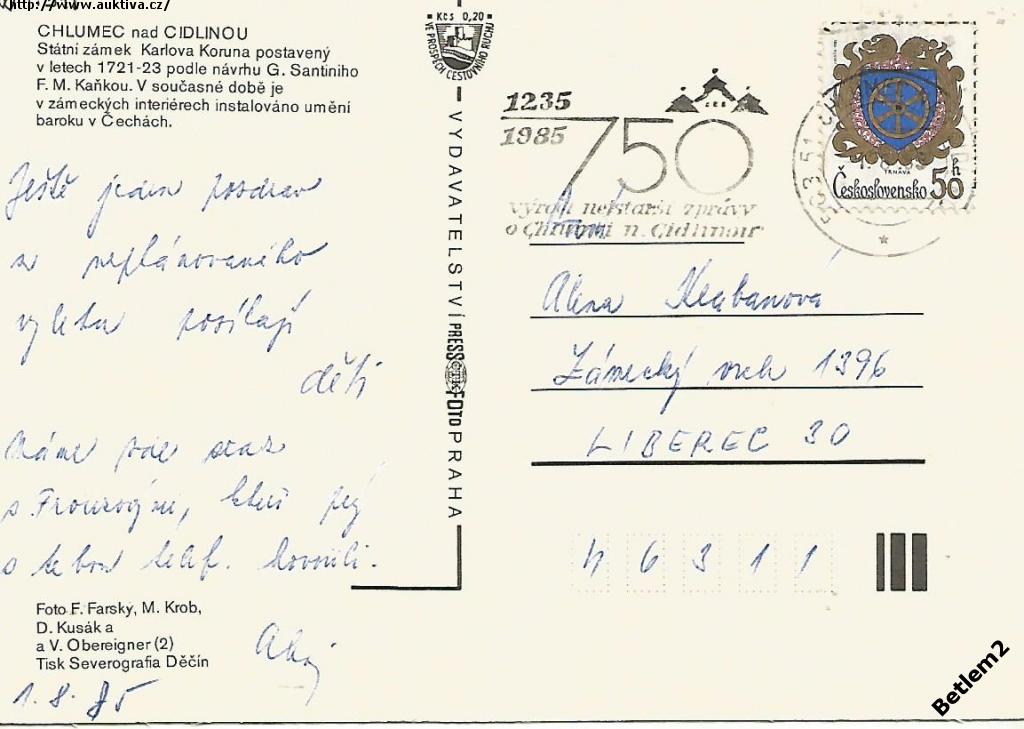 http://www.auktiva.cz/
CHLUMEC nad CIDLINOU
Státní zámek Karlova Koruna postavený
v letech 1721-23 podle návrhu G. Santiniho
F. M. Kaňkou. V současné době je
v zámeckých interiérech instalováno umění
baroku v Čechách.
Ještě jeden pozdrav
z neplánovaného
výletu posílají
děti
Máme zde sraz
s Frouzovými, kteří prý
s tebou telef. hovořili.
Foto F. Farský, M. Krob,
D. Kusák a
a V. Obereigner (2)
Tisk Severografia Děčín
Ahoj
1.8.85
Kčs 0,20
VE PROSPĚCH CESTOVNÍHO RUCHU
VYDAVATELSTVÍ PRESSFOTO PRAHA
1235
1985
750
výročí nejstarší zprávy
o Chlumci n. Cidlinou
503 51
TRNAVA
Československo 50 h
Alena Klabanová
Zámecký vrch 1396
LIBEREC 30
46311
Betlem2